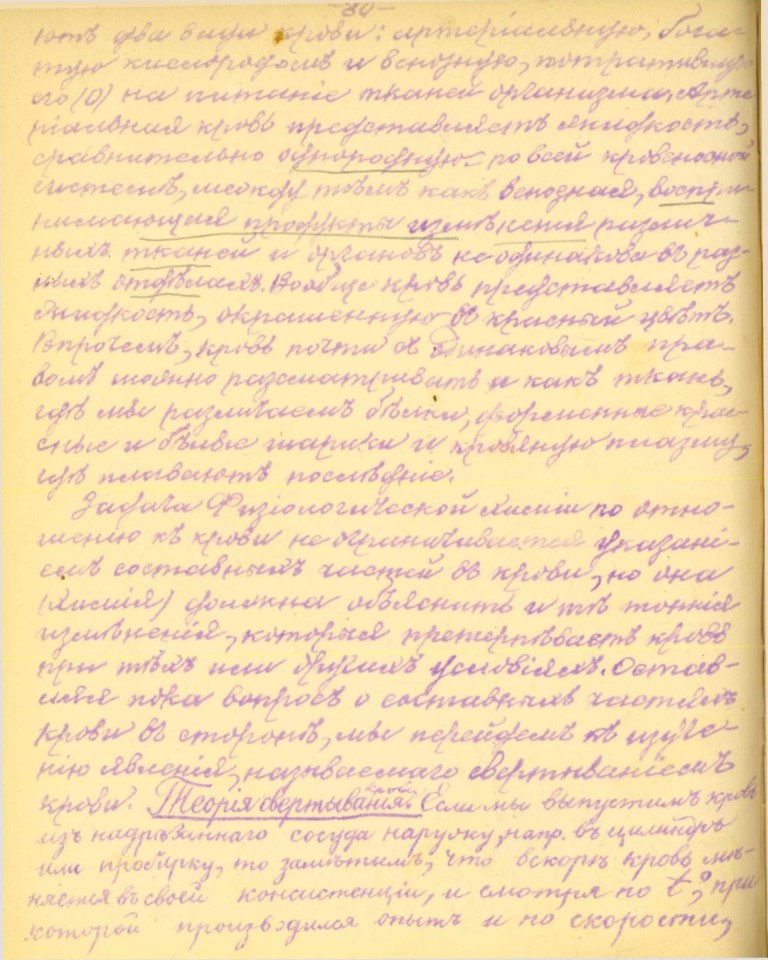 -80-
ютъ два вида крови: артеріальную, бога-
тую кислородомъ и венозную, потратившую
его (O) на питаніе тканей организма. Арте-
ріальная кровь представляетъ жидкость,
сравнительно однородную по всей кровеносной
системѣ, между тѣмъ какъ венозная, воспри-
нимающая продукты измѣненія различ-
ныхъ тканей и органовъ не одинакова въ раз-
ныхъ отдѣлахъ. Вообще кровь представляетъ
жидкость, окрашенную въ красный цвѣтъ.
Впрочемъ, кровь почти съ одинаковымъ пра-
вомъ можно разсматривать и какъ ткань,
гдѣ мы различаемъ бѣлки, форменные кра-
сные и бѣлые шарики и кровяную плазму,
гдѣ плаваютъ послѣдніе.
Задача Физіологической Химіи по отно-
шенію къ крови не ограничивается указані-
емъ составныхъ частей въ крови, но она
(Химія) должна объяснить и тѣ тонкія
измѣненія, которыя претерпѣваетъ кровь
при тѣхъ или другихъ условіяхъ. Остав-
ляя пока вопросъ о составныхъ частяхъ
крови въ сторонѣ, мы перейдемъ къ изуче-
нію явленія, называемаго свертываніемъ
крови. Теорія свертыванія крови. Если мы выпустимъ кровь
изъ надрѣзаннаго сосуда наружу, напр. въ цилиндръ
или пробирку, то замѣтимъ, что вскорѣ кровь мѣ-
няется въ своей консистенціи, и смотря по t°, при
которой производился опытъ и по скорости,